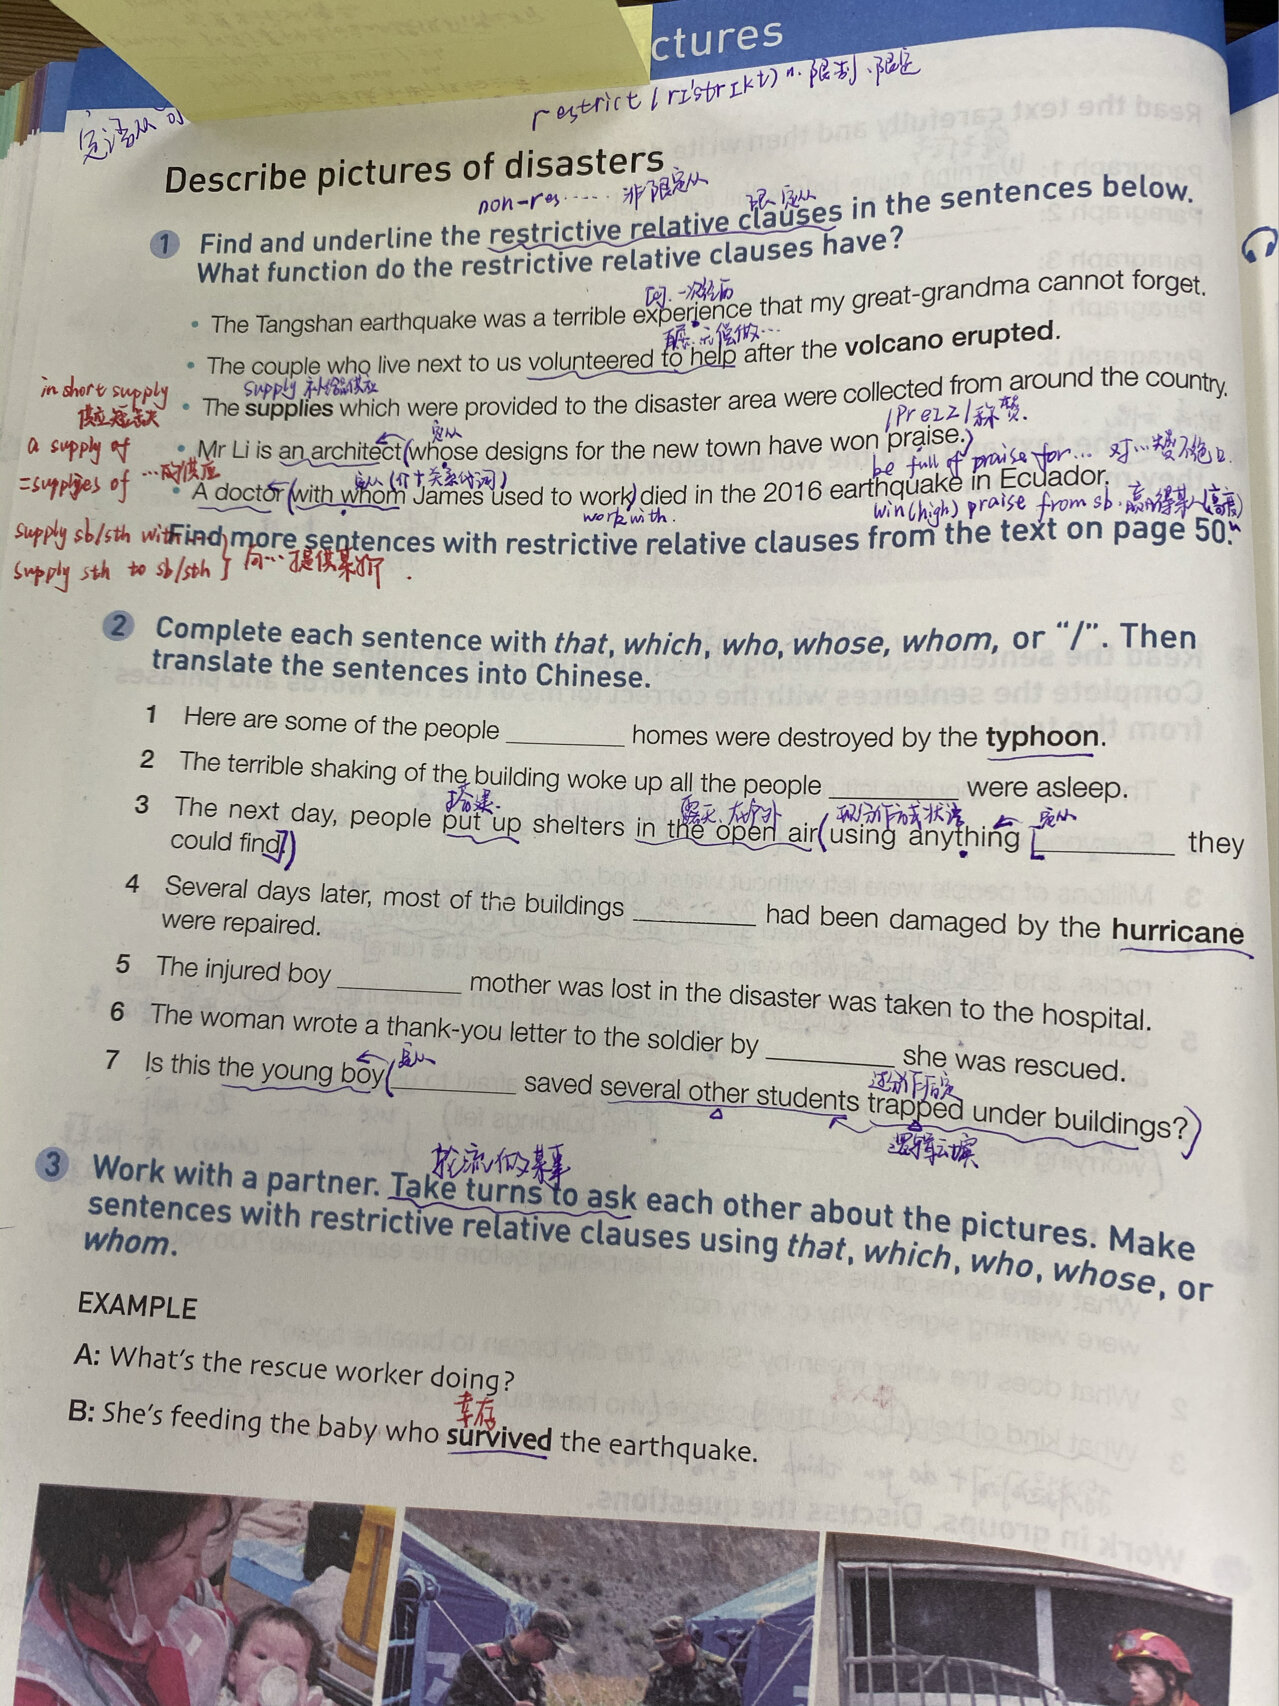 ctures
restrict /rɪ'strɪkt/ n. 限制、限定
定语从句
Describe pictures of disasters
non-res...... 非限定从
限定从
1 Find and underline the restrictive relative clauses in the sentences below.
What function do the restrictive relative clauses have?
[可]. 一次经历
• The Tangshan earthquake was a terrible experience that my great-grandma cannot forget.
• The couple who live next to us volunteered to help after the volcano erupted.
in short supply
supply 补给供应
• The supplies which were provided to the disaster area were collected from around the country.
供应短缺
/preɪz/ 称赞.
定从
a supply of
• Mr Li is an architect (whose designs for the new town have won praise.)
be full of praise for... 对...赞不绝口
=supplies of ...的供应
定从 (介+关系代词)
• A doctor (with whom James used to work) died in the 2016 earthquake in Ecuador.
work with.
win (high) praise from sb. 赢得某人(高度)
supply sb/sth with
Find more sentences with restrictive relative clauses from the text on page 50.
supply sth to sb/sth } 向...提供某物.
2 Complete each sentence with that, which, who, whose, whom, or “/”. Then
translate the sentences into Chinese.
1 Here are some of the people ________ homes were destroyed by the typhoon.
2 The terrible shaking of the building woke up all the people ________ were asleep.
搭建.
露天、在户外
现分作方式状语
定从
3 The next day, people put up shelters in the open air (using anything [________ they
could find])
4 Several days later, most of the buildings ________ had been damaged by the hurricane
were repaired.
5 The injured boy ________ mother was lost in the disaster was taken to the hospital.
6 The woman wrote a thank-you letter to the soldier by ________ she was rescued.
定从
过分作后定
7 Is this the young boy (________ saved several other students trapped under buildings?)
逻辑动宾
轮流做某事
3 Work with a partner. Take turns to ask each other about the pictures. Make
sentences with restrictive relative clauses using that, which, who, whose, or
whom.
EXAMPLE
A: What's the rescue worker doing?
幸存
B: She's feeding the baby who survived the earthquake.